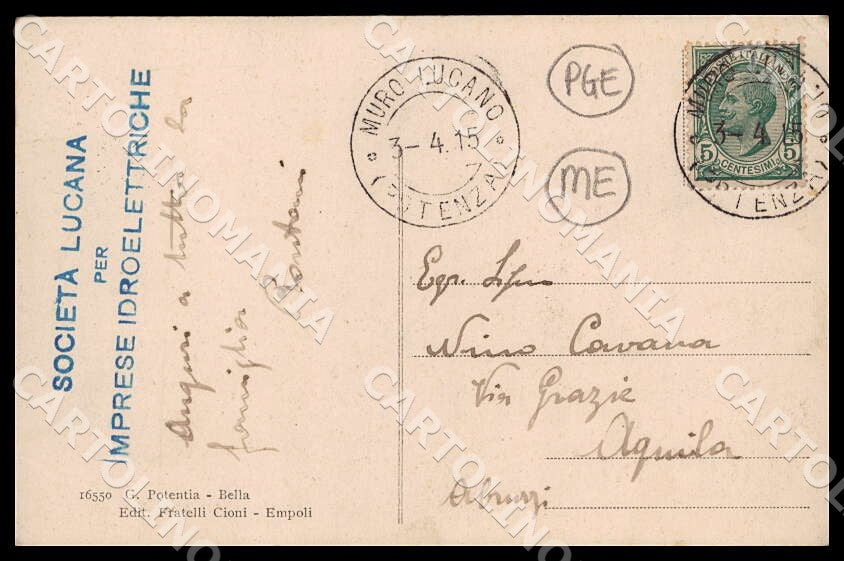 SOCIETÀ LUCANA
PER
IMPRESE IDROELETTRICHE
Auguri a tutta la
famiglia
16550 G. Potentia - Bella
Edit. Fratelli Cioni - Empoli
MURO LUCANO
3-4.15
(POTENZA)
PGE
ME
POSTE ITALIANE
5 CENTESIMI 5
MURO LUCANO
3-4.15
(POTENZA)
Egr.
Nino Cavana
Via Grazie
Aquila
Abruzzi
CARTOLINOMANIA